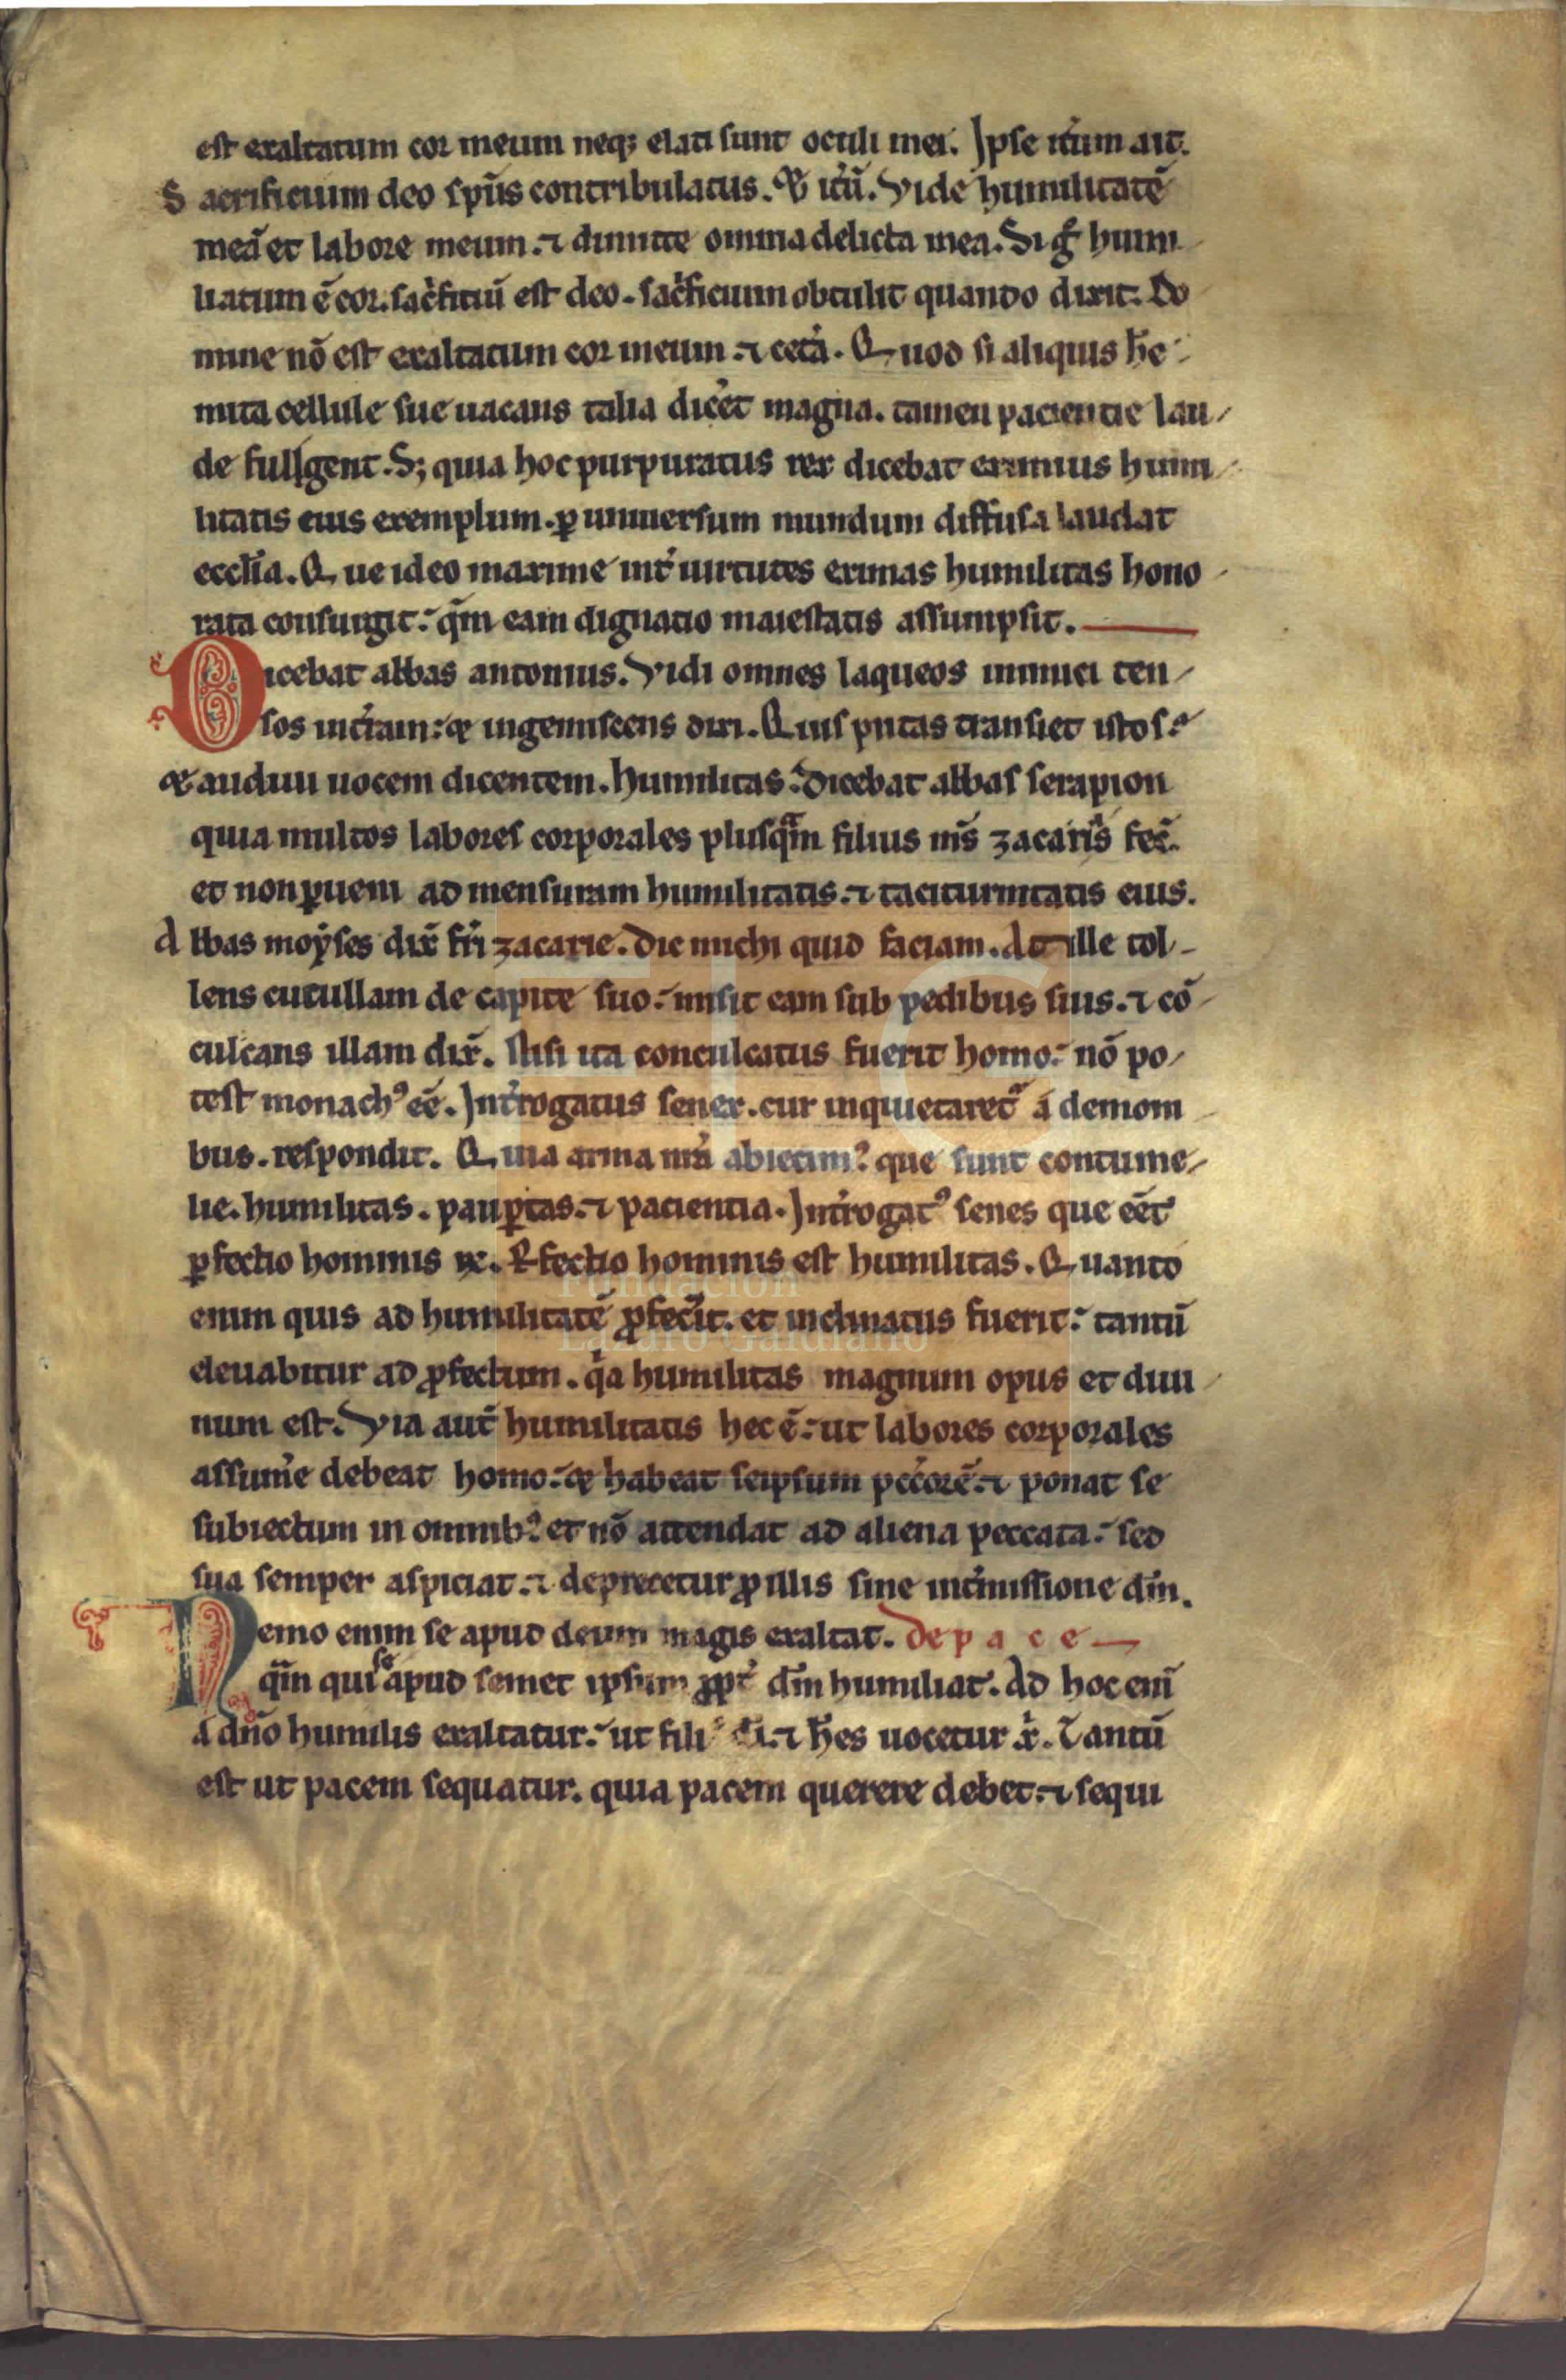 est exaltatum cor meum neq; elati sunt oculi mei. Ipse itum ait.
Sacrificium deo spūs contribulatus. Et itū. Vide humilitatē
meā et labore meum. ⁊ dimitte omnia delicta mea. Si g̊ humi
liatum ē cor. sacͥficiū est deo. sacͥficium obtulit quando dixit. Do
mine nō est exaltatum cor meum ⁊ cetā. Quod si aliquis he
mita cellule sue uacans talia dicet magna. tamen pacientie lau
de fulgent. S; quia hoc purpuratus rex dicebat eximius humi
litatis eius exemplum. ꝑ uniuersum mundum diffusa laudat
eccl̄ia. Que ideo maxime int̄ uirtutes eximias humilitas hono
rata consurgit. qm̄ eam dignatio maiestatis assumpsit.
Dicebat abbas antonius. Vidi omnes laqueos inimici ten
sos int̄ram: et ingemiscens dixi. Quis putas transiet istos?
et audiui uocem dicentem. humilitas. Dicebat abbas serapion
quia multos labores corporales plusqͣm filius ms̄ zacariˢ fec̄.
et non ꝑueni ad mensuram humilitatis. ⁊ taciturnitatis eius.
Abbas moyses dix̄ fr̄i zacarie. Dic michi quid faciam. At ille tol
lens cucullam de capite suo. misit eam sub pedibus suis. ⁊ cō
culcans illam dix̄. Nisi ita conculcatus fuerit homo. nō po
test monachꝰ eē. Int̄rogatus senex. cur inquietaretᷣ a demoni
bus. respondit. Quia arma nr̄a abiecimꝰ que sunt contume
lie. humilitas. pauꝑtas. ⁊ pacientia. Int̄rogatꝰ senes que eēt
ꝑfectio hominis Perfectio hominis est humilitas. Quanto
enim quis ad humilitatē ꝓfecit. et inclinatus fuerit. tantū
eleuabitur ad ꝓfectum. qͥa humilitas magnum opus et diui
num est. Via aut̄ humilitatis hec ē. ut labores corporales
assum̄e debeat homo. et habeat seipsum pecc̄orē. ⁊ ponat se
subiectum in omnibꝰ et nō attendat ad aliena peccata. sed
sua semper aspiciat. ⁊ deprecetur ꝓ illis sine int̄missione dm̄.
Nemo enim se apud deum magis exaltat. De pace
qm̄ qui se apud semet ipsum ꝓpt̄ dm̄ humiliat. Ad hoc enī
a dn̄o humilis exaltatur. ut filiꝰ di. ⁊ hes uocetur xͥ. Tantū
est ut pacem sequatur. quia pacem querere debet. ⁊ sequi
FLG
Fundación
Lázaro Galdiano